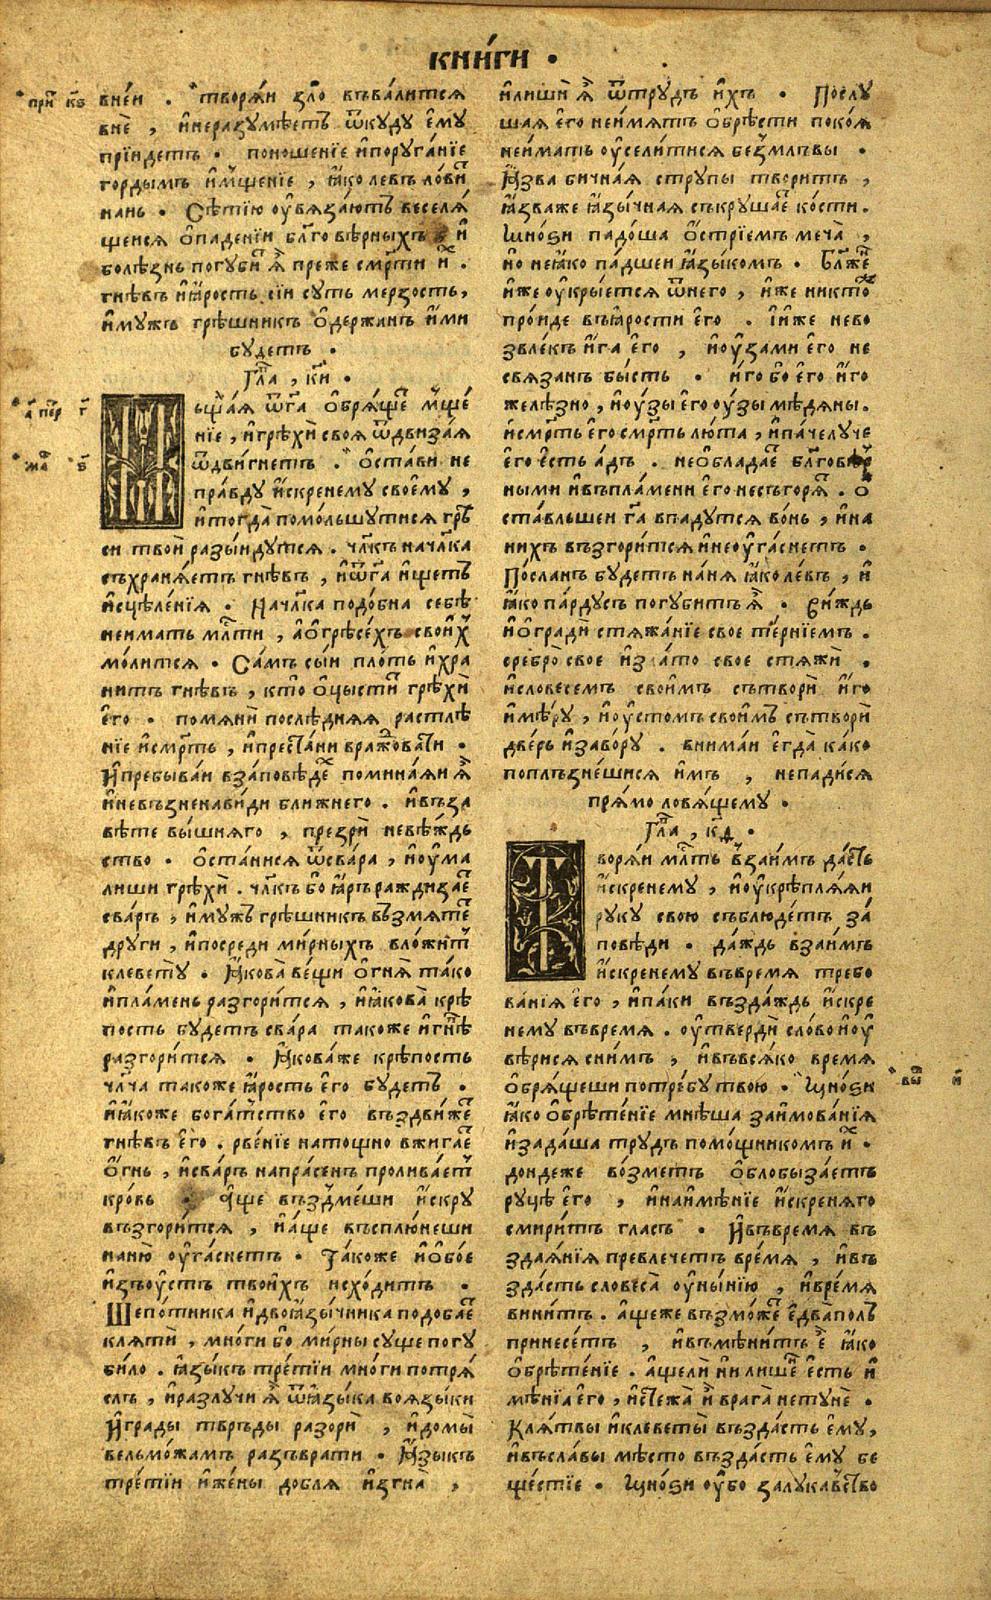 кни́ги .
при́ кз
вне́и . творѧ́и ѕло̀ въва́литсѧ
внѐ , и҆неразꙋмѣ́етъ ѿкꙋдꙋ є҆мꙋ
прїи́детъ . поноше́нїе и҆порꙋга́нїе
го́рдымъ и҆мще́нїе , ꙗ҆́ко левъ лови
нань . Сѣ́тїю ᲂу҆вѧза́ютъ веселѧ́
щеисѧ ѡ҆паде́нїи бл҃говѣ́рныхъ , и҆
болѣ́знь погꙋби́ ѧ҆̀ преже сме́рти и́х .
гнѣ́въ и҆ꙗ҆́рость сїи сꙋть ме́рзость ,
и҆мꙋжъ грѣ́шникъ ѡ҆держа́нъ и҆́ми
бꙋдетъ .
Гла̀ , ки .
а҃ пе́р г҃
ьща́ѧ ѿгⷭ҇а ѡ҆брѧ́щеⷮ мще́
нїе , и҆грѣхѝ своѧ ѿдвиза́ѧ
ма́ѳ ѕ҃
ѿдви́гнетъ . ѡ҆ста́ви не
пра́вдꙋ и҆́скренемꙋ своемꙋ̀ ,
и҆тогда̀ помо́льшꙋтисѧ грѣ
си твоѝ разы́идꙋтсѧ . чл҃къ начл҃ка
съхранѧ́етъ гнѣ́въ , и҆ѿгⷭ҇а и҆́щетъ
и҆сцѣле́нїѧ . Начл҃ка подо́бна себѣ̀
неимать млⷭ҇ти , а҆ѡ҆грѣсе́хъ свои́х
мо́литсѧ . Са́мъ сы́и пло́ть и҆хра
ни́тъ гнѣ́въ , кто̀ ѡ҆цы́стиⷮ грѣхѝ
є҆го . помѧнѝ послѣ́днѧѧ растлѣ́
нїе и҆сме́рть , и҆преста́ни враждова́ти .
И҆пребыва́и взаповѣдеⷯ помина́ѧи ѧ҆̀
и҆невъзненави́ди бли́жнего . и҆въза
вѣ́те вы́шнѧго , презрѝ невѣ́ждь
ство . ѡ҆ста́нисѧ ѿсва́ра , и҆ᲂу҆ма
ли́ши грѣхѝ . чл҃къ бо ꙗ҆́ръ раждиза́еⷮ
сва́ръ , и҆мꙋжъ грѣ́шникъ възмѧте́ⷮ
дрꙋги , и҆посредѝ ми́рныхъ вложи́тъ
клеветꙋ̀ . Ꙗ҆́кова̀ ве́щи ѡ҆гнѧ̀ та́ко
и҆пла́мень разгори́тсѧ , и҆ꙗ҆кова̀ крѣ́
пость бꙋдетъ сва́ра та́коже и҆гнѣ́в
разгори́тсѧ . Ꙗ҆кова́же крѣ́пость
чл҃ча та́коже ꙗ҆́рость є҆го бꙋдетъ .
и҆ꙗ҆́коже бога́тство є҆го въздви́жеⷮ
гнѣ́въ є҆го . рве́нїе нато́щно вжига́еⷮ
ѻ҆́гнь , и҆сва́ръ напра́сенъ пролива́етъ
кро́вь . а҆́ще въздме́ши и҆́скрꙋ
възгори́тсѧ , и҆а҆́ще въсплю́неши
наню̀ ᲂу҆га́снетъ . Та́коже и҆ѻ҆бо́е
и҆зъᲂу҆́стъ твои́хъ исхо́дитъ .
Шепо́тника и҆двоꙗ҆зы́чника подоба́еⷮ
клѧ́ти , мно́ги бо ми́рны сꙋще погꙋ
би́ло . ꙗ҆зы́къ тре́тїи мно́ги потрѧ́
слъ , и҆разлꙋчи ѧ҆̀ ѿꙗ҆зы́ка воѧзы́ки
И҆гра́ды твръды разорѝ , и҆до́мы
вельмо́жамъ разъвратѝ . Ꙗ҆зы́къ
тре́тїи и҆же́ны до́блѧ и҆згна̀ ,
и҆лишѝ ѧ҆̀ ѿтрꙋдъ и҆́хъ . Послꙋ
шаѧ є҆го неи́мѧтъ ѡ҆брѣсти поко́ѧ
неи́мать ᲂу҆сели́тисѧ безмлъвы .
Ꙗ҆́зва бична́ѧ стрꙋпы твори́тъ ,
ꙗ҆́зваже ꙗ҆зы́чнаѧ съкрꙋша́еⷮ ко́сти .
Мно́ѕи падо́ша ѻ҆стрїе́мъ меча̀ ,
но не ꙗ҆́ко па́дшеи ꙗ҆зы́комъ . Бл҃же́нъ
и҆́же ᲂу҆кры́етсѧ ѿнего , и҆́же никто́ж
про́иде въꙗ҆́рости є҆го . І҆и҆́же нево
звле́къ и҆́га є҆го , и҆ᲂу҆́зами є҆го не
свѧ́занъ бы́сть . и҆́го бо є҆го и҆́го
желѣ́зно , и҆ᲂу҆́зы є҆го ᲂу҆зы мѣ́дѧны .
и҆сме́рть є҆го сме́рть лю́та , и҆па́че лꙋче
є҆го є҆сть а҆́дъ . неѡ҆блада́еⷮ бл҃говѣ́р
ными и҆въпла́мени є҆го несъгорѧ́ⷮ . ѡ҆
ста́вльшеи гⷭ҇а впадꙋтсѧ во́нь , и҆на
ни́хъ възгори́тсѧ и҆неᲂу҆га́снетъ .
По́сланъ бꙋдетъ на́нѧ ꙗ҆́ко ле́въ , и҆
ꙗ҆́ко па́рдꙋсъ погꙋбитъ ѧ҆̀ . Ви́ждь
и҆ѡ҆градѝ стѧжа́нїе свое те́рнїемъ .
сребро̀ свое и҆з ато свое стѧжѝ ,
и҆словесе́мъ свои́мъ сътворѝ и҆́го
и҆мѣ́рꙋ , и҆ᲂу҆сто́мъ свои́мъ сътворѝ
две́рь и҆забо́рꙋ . вниман є҆гда̀ ка́ко
поплъзне́шисѧ и҆́мъ , непади́сѧ
прѧ́мо ловѧ́щемꙋ .
Гла̀ , кѳ .
ворѧ́и млⷭ҇ть вза́имъ дае́ть
и҆́скренемꙋ , и҆ᲂу҆крѣплѧ́ѧи
рꙋкꙋ свою съблюде́тъ за́
повѣди . да́ждь вза́имъ
и҆́скренемꙋ въвре́мѧ требо
ва́нїѧ є҆го , и҆па́ки възда́ждь и҆́скре
немꙋ въвре́мѧ . ᲂу҆твердѝ сло́во и҆ᲂу҆
вѣ́рисѧ сни́мъ , и҆въвсѧ́ко вре́мѧ
ѡ҆брѧ́щеши потре́бꙋ твою . Мно́ѕи
вы́ш и҃
ꙗ҆́ко ѡ҆брѣте́нїе мнѣ́ша займова́нїѧ
и҆зада́ша трꙋдъ помо́щникомъ и́х .
дондеже во́зметъ ѡ҆блобыза́етъ
рꙋцѣ̀ є҆го , и҆наимѣ́нїе и҆́скренѧго
смири́тъ гла́съ . И҆въвре́мѧ въ
здаѧ́нїѧ превлече́тъ вре́мѧ , и҆въ
зда́сть словеса̀ ᲂу҆ны́нїю , и҆вре́мѧ
вини́тъ . а҆щеже възмо́жеⷮ є҆два̀ по́лъ
принесе́тъ , и҆въмѣни́тъ є҆̀ ꙗ҆́ко
ѡ҆брѣте́нїе . а҆щелѝ ни лише́н є҆сть и҆
мѣ́нїѧ є҆го , и҆стежа̀ и҆̀ врага̀ нетꙋнѐ .
Клѧ́твы и҆клеветы̀ възда́сть є҆мꙋ ,
и҆въсла́вы мѣ́сто възда́сть є҆мꙋ бе
ще́стїе . Мно́ѕи ᲂу҆́бо залꙋка́вство